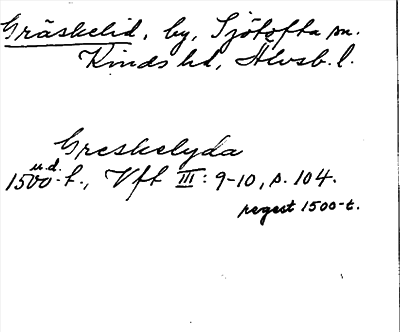 Gräskelid, by, Sjötofta sn.
Kinds hd, Älvsb. l.
Greskelyda
u.d.
1500-t., Vft III: 9-10, s. 104.
regest 1500-t.